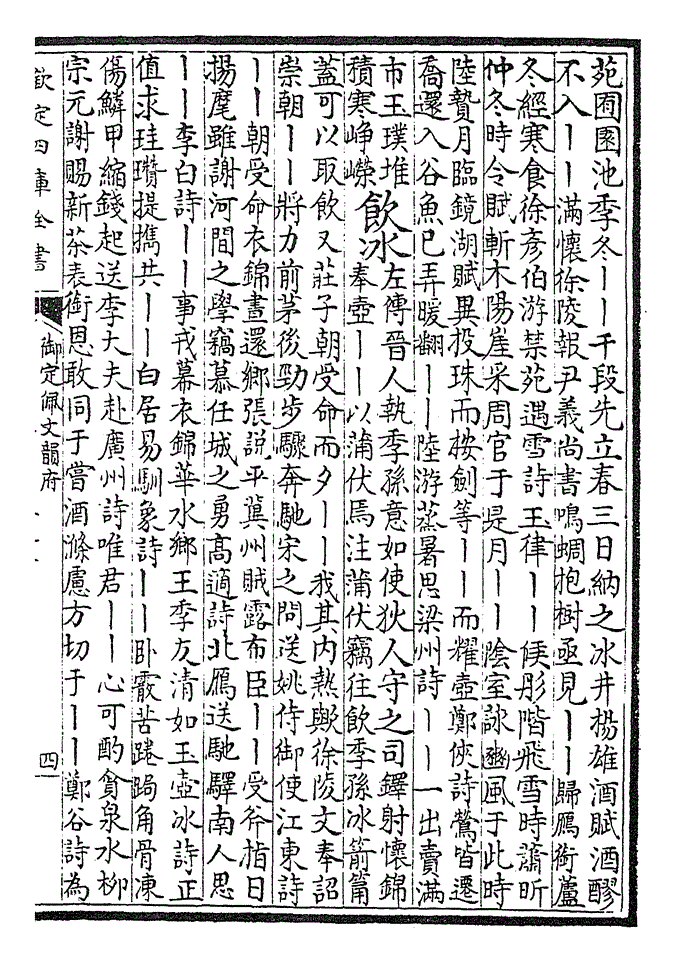 苑囿園池季冬丨丨千段先立春三日納之冰井楊雄酒賦酒醪
不入丨丨滿懷徐陵報尹義尚書鳴蜩抱樹亟見丨丨歸鴈銜蘆
冬經寒食徐彥伯游禁苑遇雪詩玉律丨丨候彤階飛雪時蕭昕
仲冬時令賦斬木陽崖采周官于是月丨丨陰室詠豳風于此時
陸贄月臨鏡湖賦異投珠而按劍等丨丨而耀壺鄭俠詩鶯皆遷
喬還入谷魚已弄暖翻丨丨陸游蒸暑思梁州詩丨丨一出賣滿
市玉璞堆積寒崢嶸
飲冰
左傳晉人執季孫意如使狄人守之司鐸射懷錦奉壺丨丨以蒲伏焉注蒲伏竊往飲季孫冰箭筩
蓋可以取飲又莊子朝受命而夕丨丨我其內熱歟徐陵文奉詔
崇朝丨丨將力前茅後勁步驟奔馳宋之問送姚侍御使江東詩
丨丨朝受命衣錦晝還鄉張說平冀州賊露布臣丨丨受斧指日
揚麾雖謝河間之學竊慕任城之勇高適詩北鴈送馳驛南人思
丨丨李白詩丨丨事戎幕衣錦華水鄉王季友清如玉壺冰詩正
值求珪瓚提攜共丨丨白居易馴象詩丨丨卧霰苦踡跼角骨凍
傷鱗甲縮錢起送李大夫赴廣州詩唯君丨丨心可酌貪泉水柳
宗元謝賜新茶表銜恩敢同于嘗酒滌慮方切于丨丨鄭谷詩為
欽定四庫全書
御定佩文韻府
四